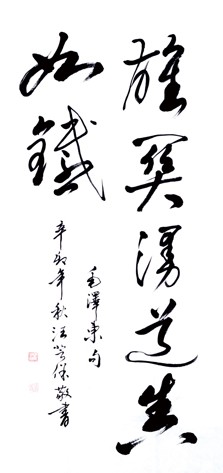 雄关漫道真
如鐵
毛澤東句
辛卯年秋汪芳保敬書